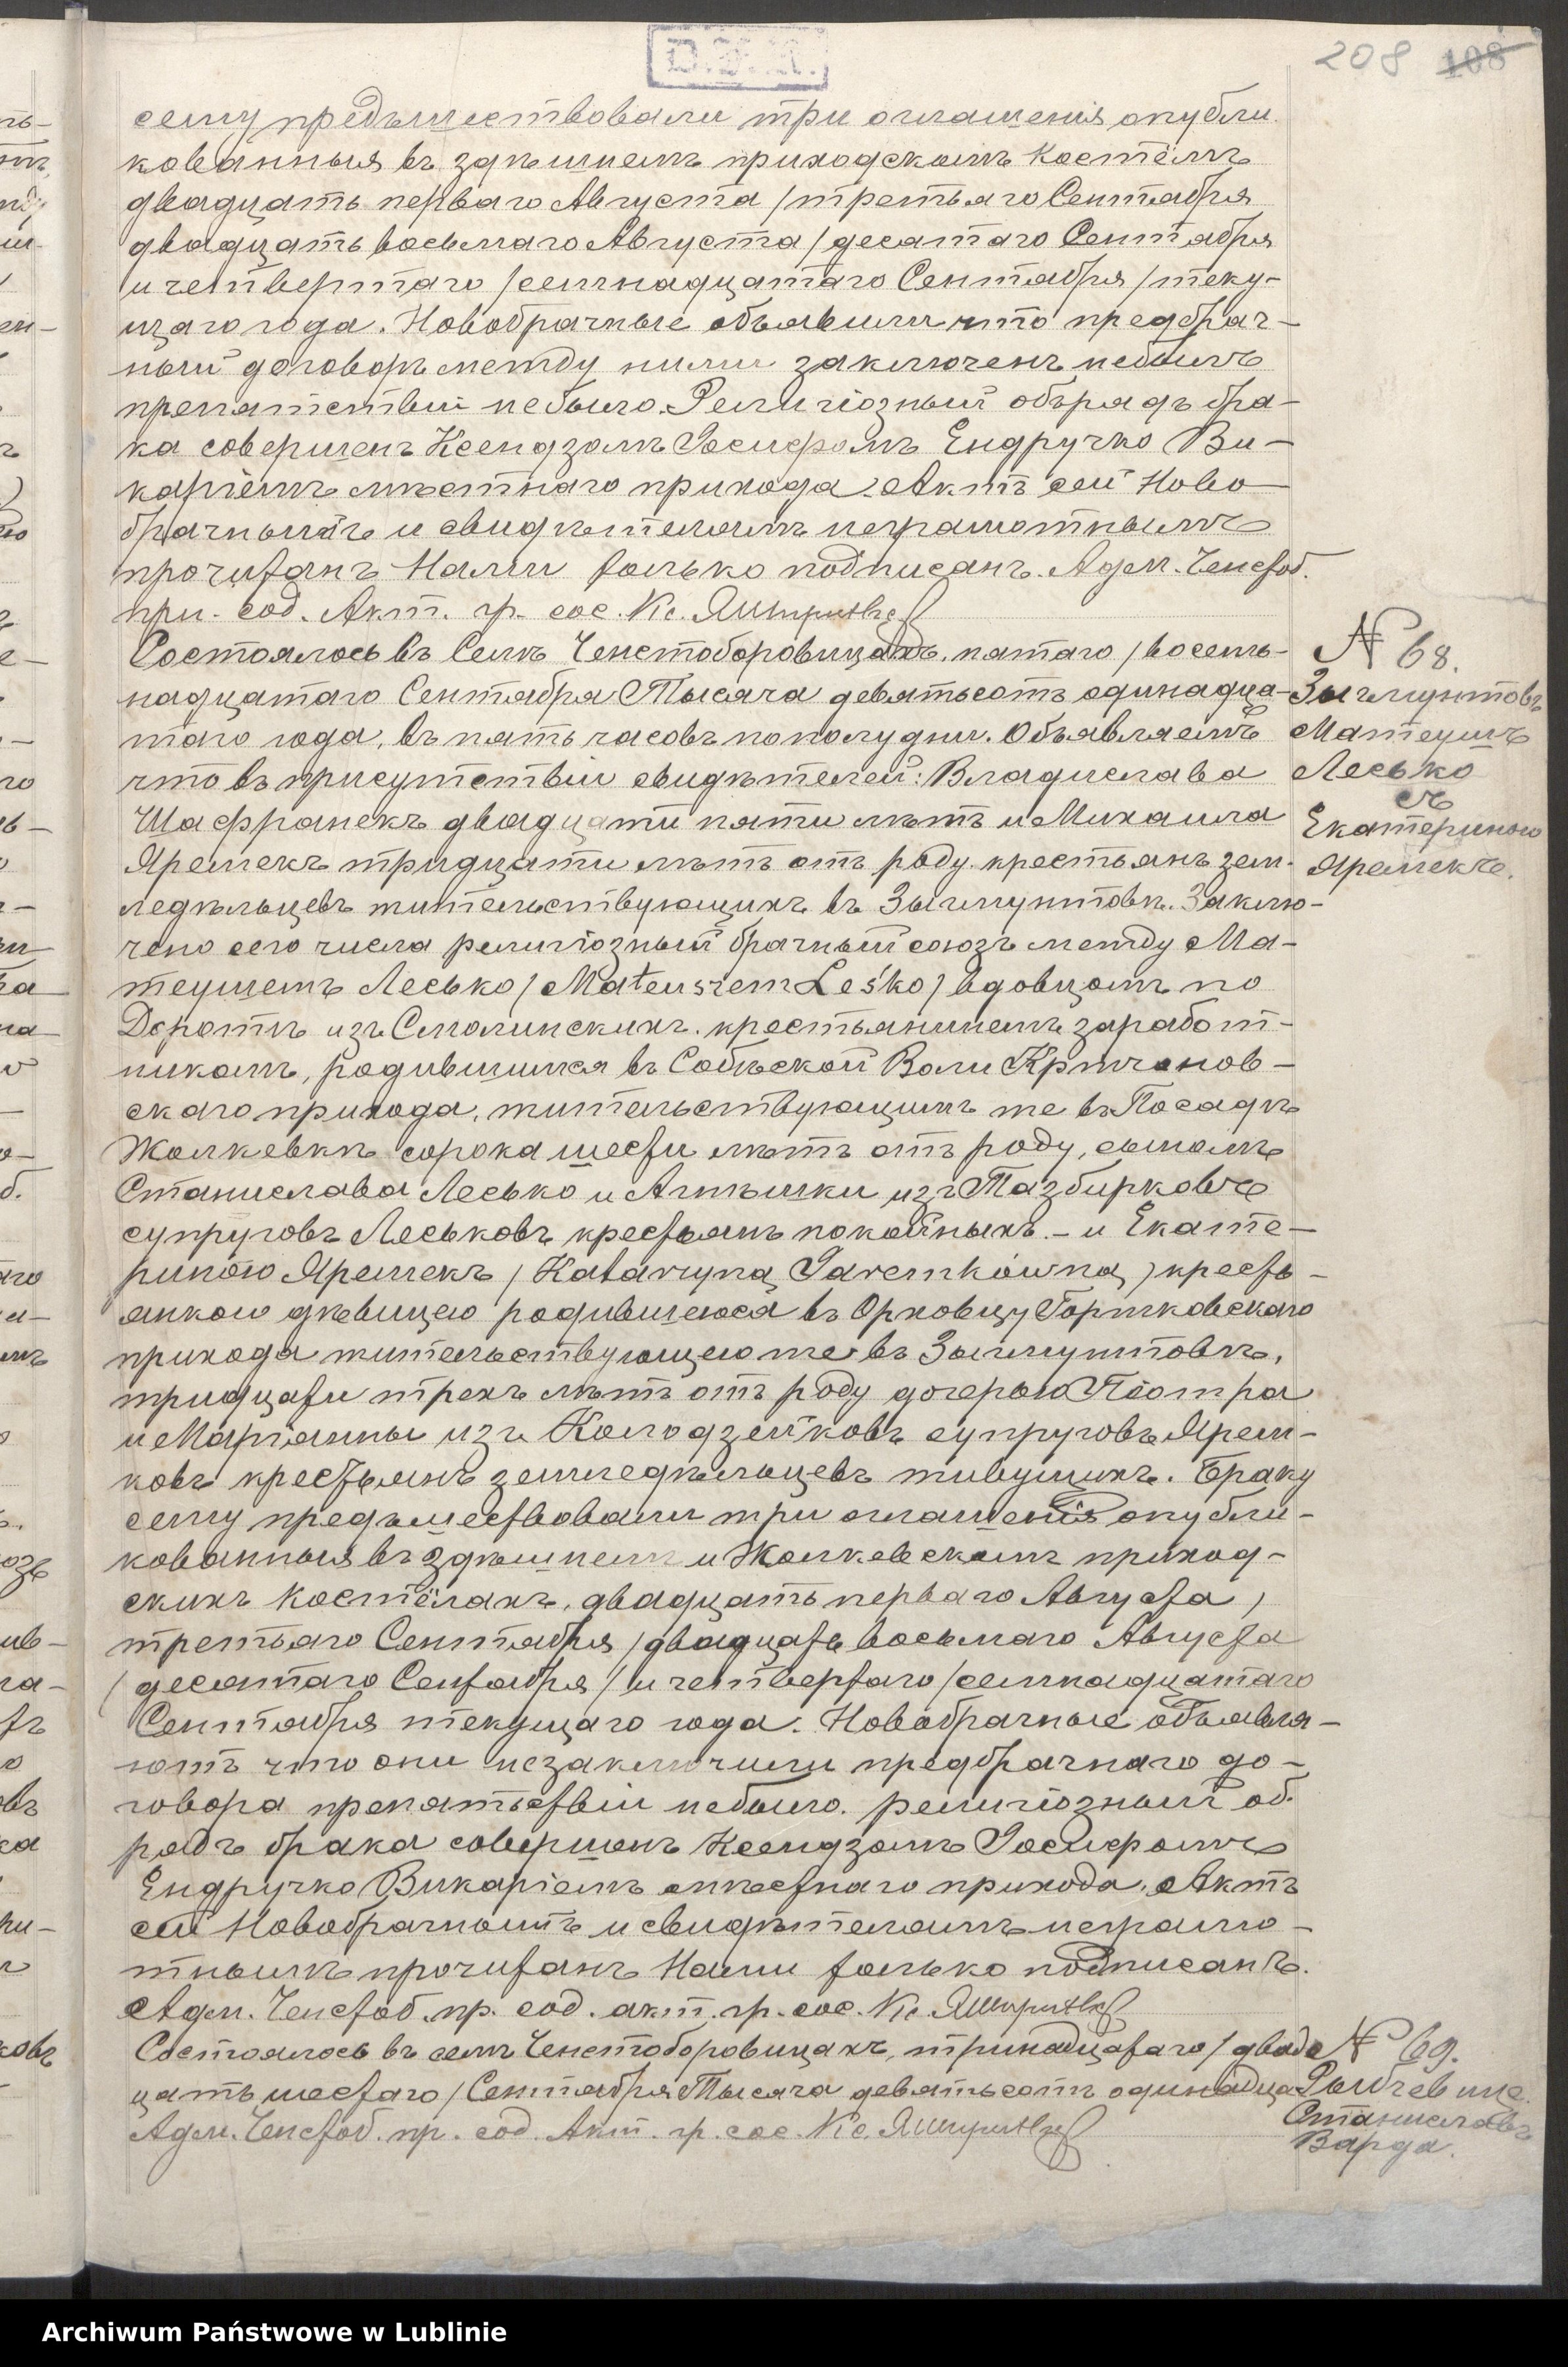 208 108
сему предъшествовали три оглашенія опубли
кованныя въ здѣшнемъ приходскомъ Костёлѣ
двадцать перваго Августа /третьяго Сентября
двадцать восьмаго Августа /десятаго Сентября
и четвертаго /семнадцатаго Сентября /теку-
щаго года. Новобрачные объявили что предбрач-
ный договоръ между ними заключенъ небылъ
препятствій небыло. Религіозный обърядъ бра-
ка совершенъ Ксендзомъ Іосифомъ Ендручко Ви-
каріемъ мѣстнаго прихода. Актъ сей Ново-
брачнымъ и свидѣтелямъ неграмотнымъ
прочитанъ Нами только подписанъ. Адм. Ченстоб.
при. сод. Акт. гр. сос. Кс.
Состоялось въ Селѣ Ченстоборовицахъ, пятаго /восемь-
надцатаго Сентября Тысяча девятьсотъ одинадца-
таго года, въ пять часовъ пополудни. Объявляемъ
что въ присутствіи свидѣтелей: Владислава
Шафранекъ двадцати пяти лѣтъ и Михаила
Яремекъ тридцати лѣтъ отъ роду крестьянъ зем-
ледѣльцевъ жительствующихъ въ Зыгмунтовѣ. Заклю-
чено сего числа религіозный брачный союзъ между Ма-
теушемъ Лесько /Mateuszem Leśko/ вдовцомъ по
Доротѣ изъ Смолинскихъ. крестьяниномъ заработ-
никомъ, родившимся въ Собѣской Воли Кртчонов-
скаго прихода, жительствующимъ же въ Посадѣ
Жолкевкѣ сорока шести лѣтъ отъ роду, сыномъ
Станислава Лесько и Агнѣшки изъ Тазбирковъ
супруговъ Леськовъ крестьянъ покойныхъ. - и Екате-
риною Яремекъ /Katarzyną Jaremkówną/ кресть-
янкою дѣвицею родившеюся въ Орховцу Горжковскаго
прихода жительствующею же въ Зыгмунтовѣ,
тридцати трехъ лѣтъ отъ роду дочерью Піотра
и Маріанны изъ Колодзейковъ супруговъ Ярем-
ковъ крестьянъ земледѣльцевъ живущихъ. Браку
сему предъшествовали три оглашенія опубли-
кованныя въ здѣшнемъ и Жолкевскомъ приход-
скихъ Костёлахъ, двадцать перваго Августа /
третьяго Сентября /двадцать восьмаго Августа
/десятаго Сентября/ и четвертаго /семнадцатаго
Сентября текущаго года. Новобрачные объявля-
ютъ что они незаключили предбрачнаго до-
говора препятьствіи небыло. религіозный об-
рядъ брака совершонъ Ксендзомъ Іосифомъ
Ендручко Викаріемъ мѣстнаго прихода. Актъ
сей Новобрачнымъ и свидѣтелямъ неграмо-
тнымъ прочитанъ Нами только подписанъ.
Адм. Ченстоб. пр. сод. акт. гр. сос. Кс.
Состоялось въ селѣ Ченстоборовицахъ, тринадцатаго /двад-
цать шестаго/ Сентября Тысяча девятьсотъ одинадца
Адм. Ченстоб. пр. сод. Акт. гр. сос. Кс.
№ 68.
Зыгмунтовъ
Матеушъ
Лесько
съ
Екатериною
Яремекъ.
№ 69.
Рыбчевице
Станиславъ
Варда.
Archiwum Państwowe w Lublinie